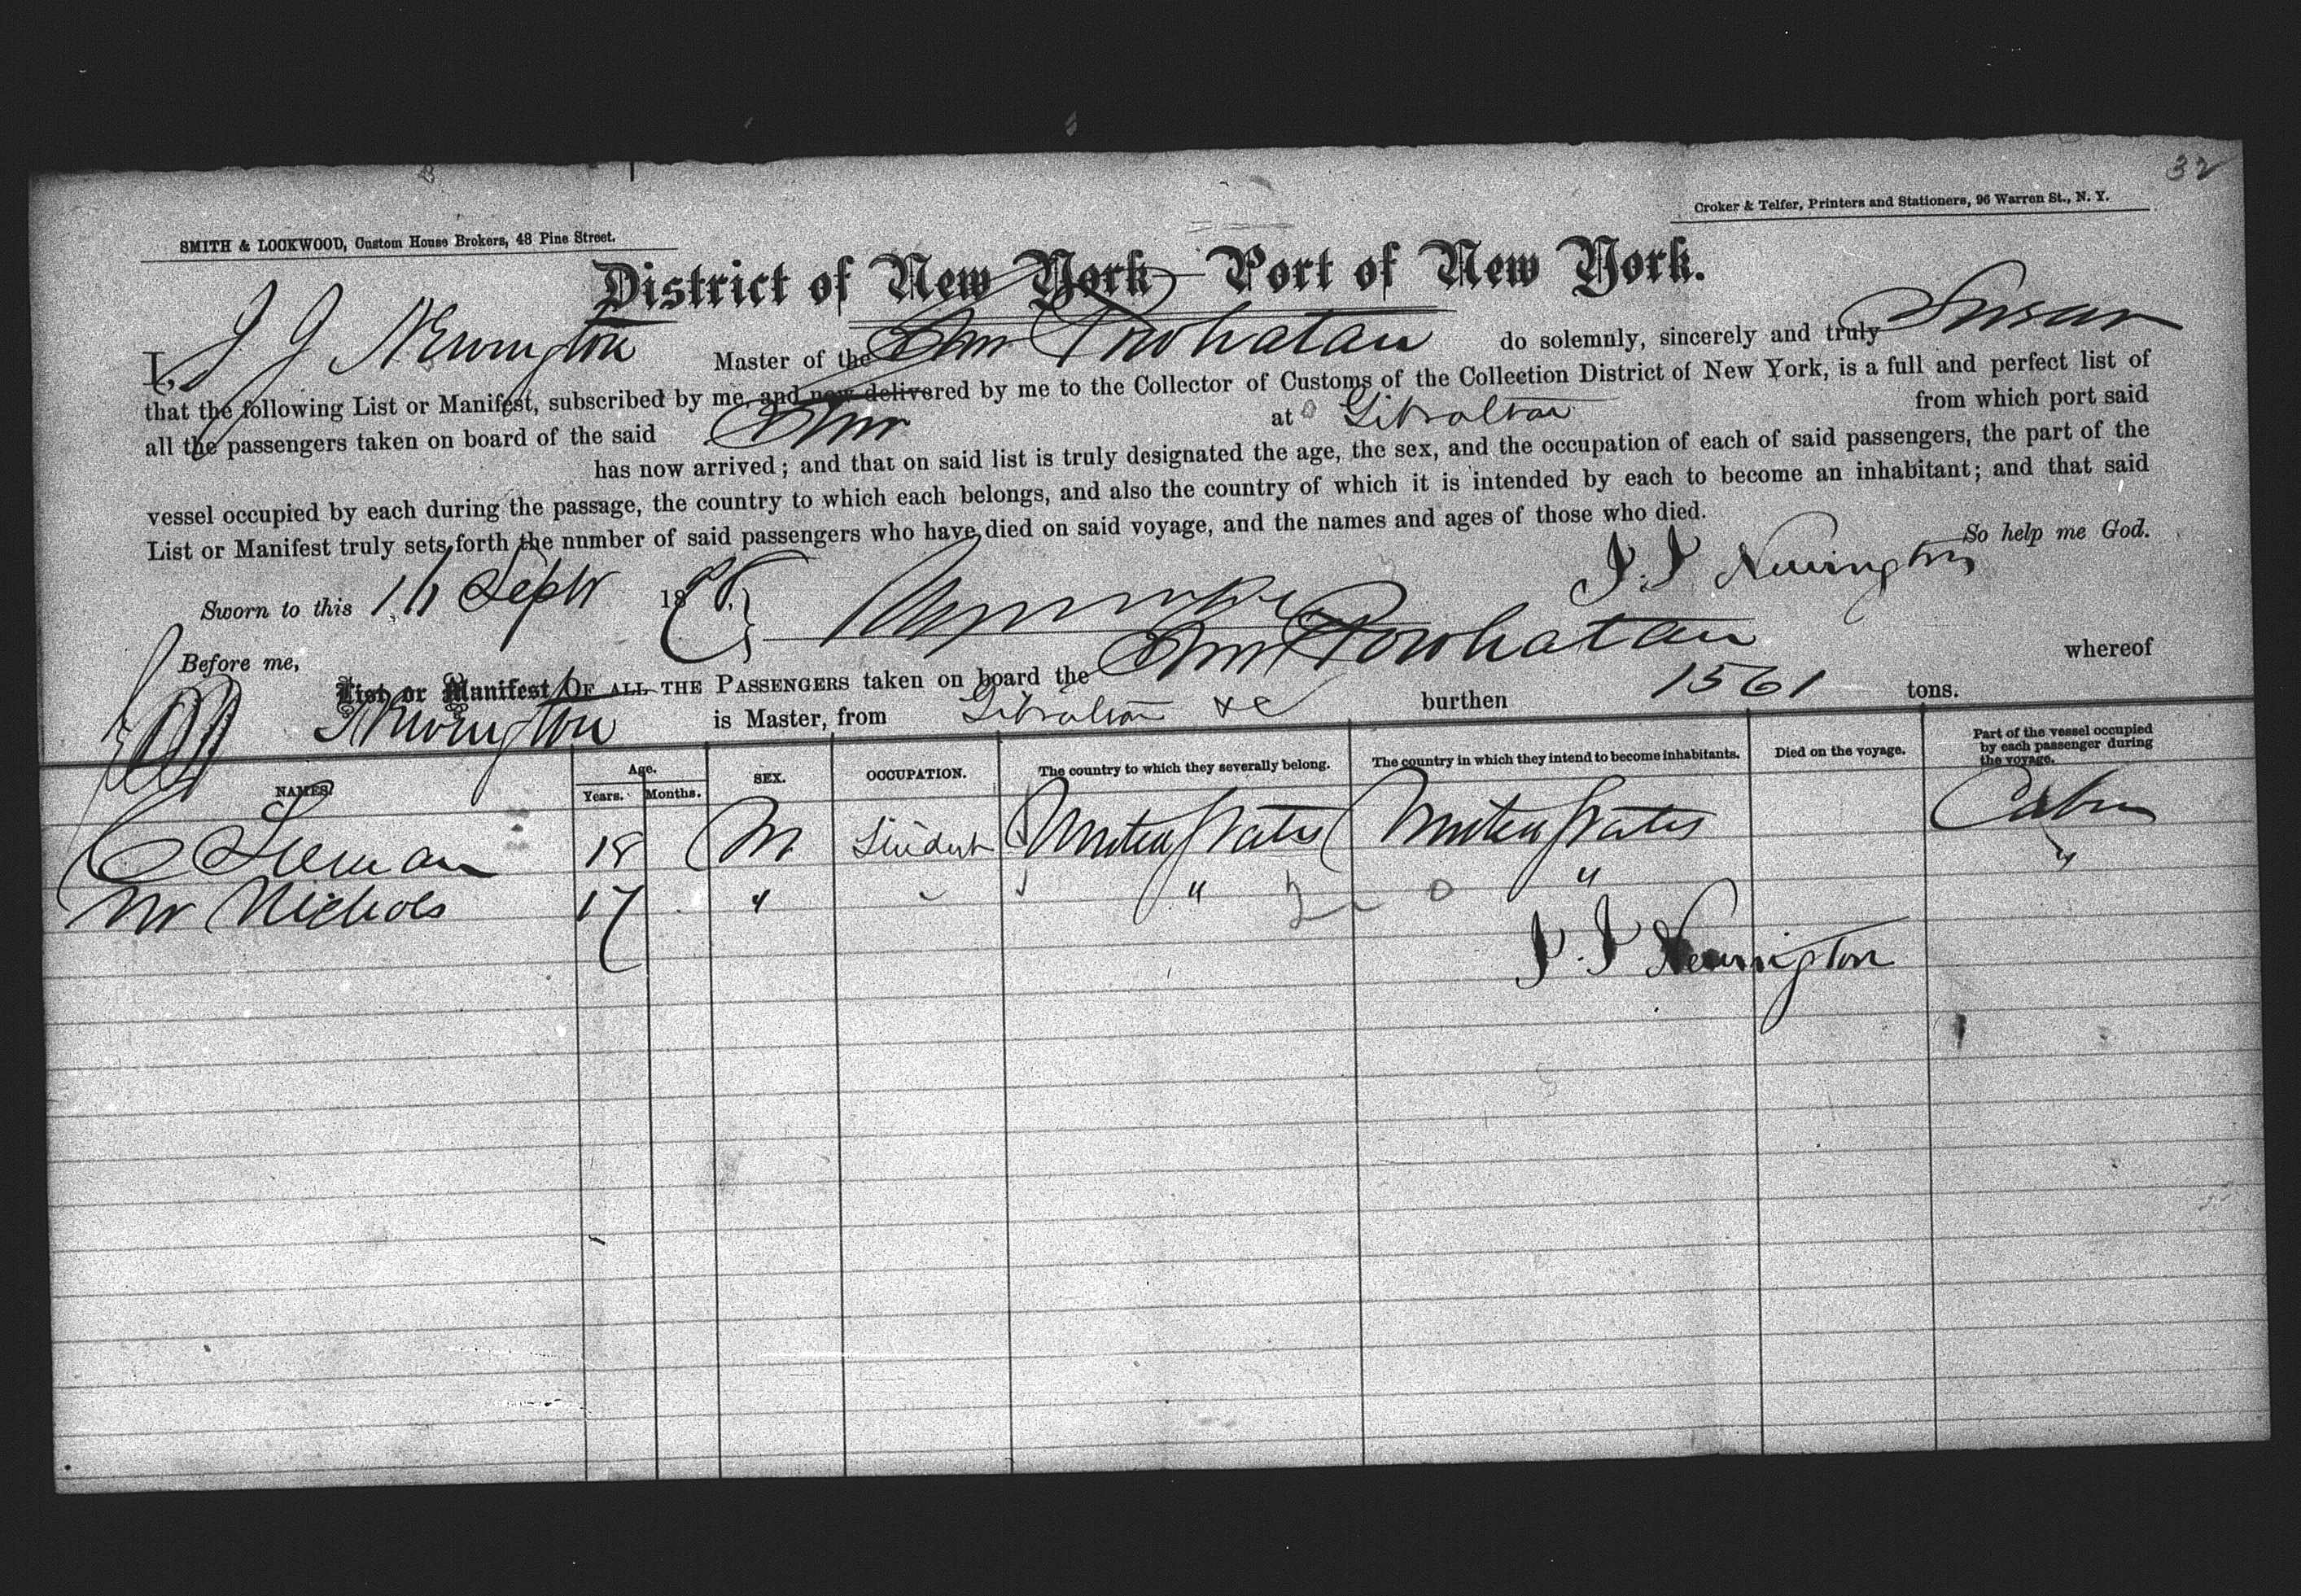 32
Croker & Telfer, Printers and Stationers, 96 Warren St., N. Y.
SMITH & LOCKWOOD, Custom House Brokers, 48 Pine Street.
District of New York—Port of New York.
I, J J Newington Master of the Str Powhatan do solemnly, sincerely and truly Swear
that the following List or Manifest, subscribed by me, and now delivered by me to the Collector of Customs of the Collection District of New York, is a full and perfect list of
all the passengers taken on board of the said Str at Gibraltar from which port said
has now arrived; and that on said list is truly designated the age, the sex, and the occupation of each of said passengers, the part of the
vessel occupied by each during the passage, the country to which each belongs, and also the country of which it is intended by each to become an inhabitant; and that said
List or Manifest truly sets forth the number of said passengers who have died on said voyage, and the names and ages of those who died.
So help me God.
J. J Newington
Sworn to this 16 Sept 188
Before me,
List or Manifest OF ALL THE PASSENGERS taken on board the Str Powhatan whereof
Newington is Master, from Gibraltar &c burthen 1561 tons.
NAMES. Age. Years. Months. SEX. OCCUPATION. The country to which they severally belong. The country in which they intend to become inhabitants. Died on the voyage. Part of the vessel occupied by each passenger during the voyage.
C Leeman 18 M Student United States United States Cabin
Mr Nichols 17 " " " " "
J. J Newington